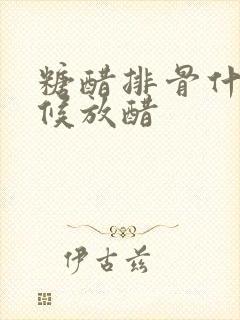 糖醋排骨什
候放醋
伊古兹